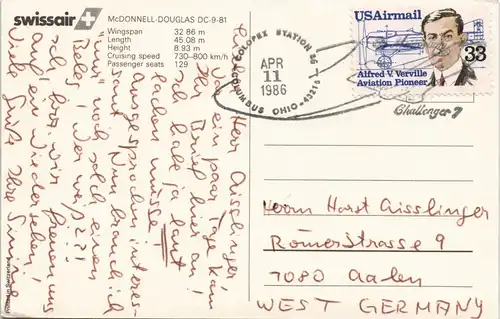 swissair
McDONNELL-DOUGLAS DC-9-81
Wingspan 32.86 m
Length 45.08 m
Height 8.93 m
Cruising speed 730–800 km/h
Passenger seats 129
COLOPEX STATION 86
APR
11
1986
COLUMBUS OHIO-43216
USAirmail
33
Alfred V. Verville
Aviation Pioneer
Challenger 7
Herr Aisslinger
ein paar Tage kam
Ihr Brief hier an!
Ich habe ja laut
lachen müsse
ausgesprochen interes-
sant. Nun brauch ich
"nur" noch solch einen
Bebe! Wer weiß???
Ich wir freuen uns
auf ein Wiedersehen!
Viele Grüße Ihre Simone
Herrn Horst Aisslinger
Römerstrasse 9
7080 Aalen
WEST GERMANY
Printed in Switzerland